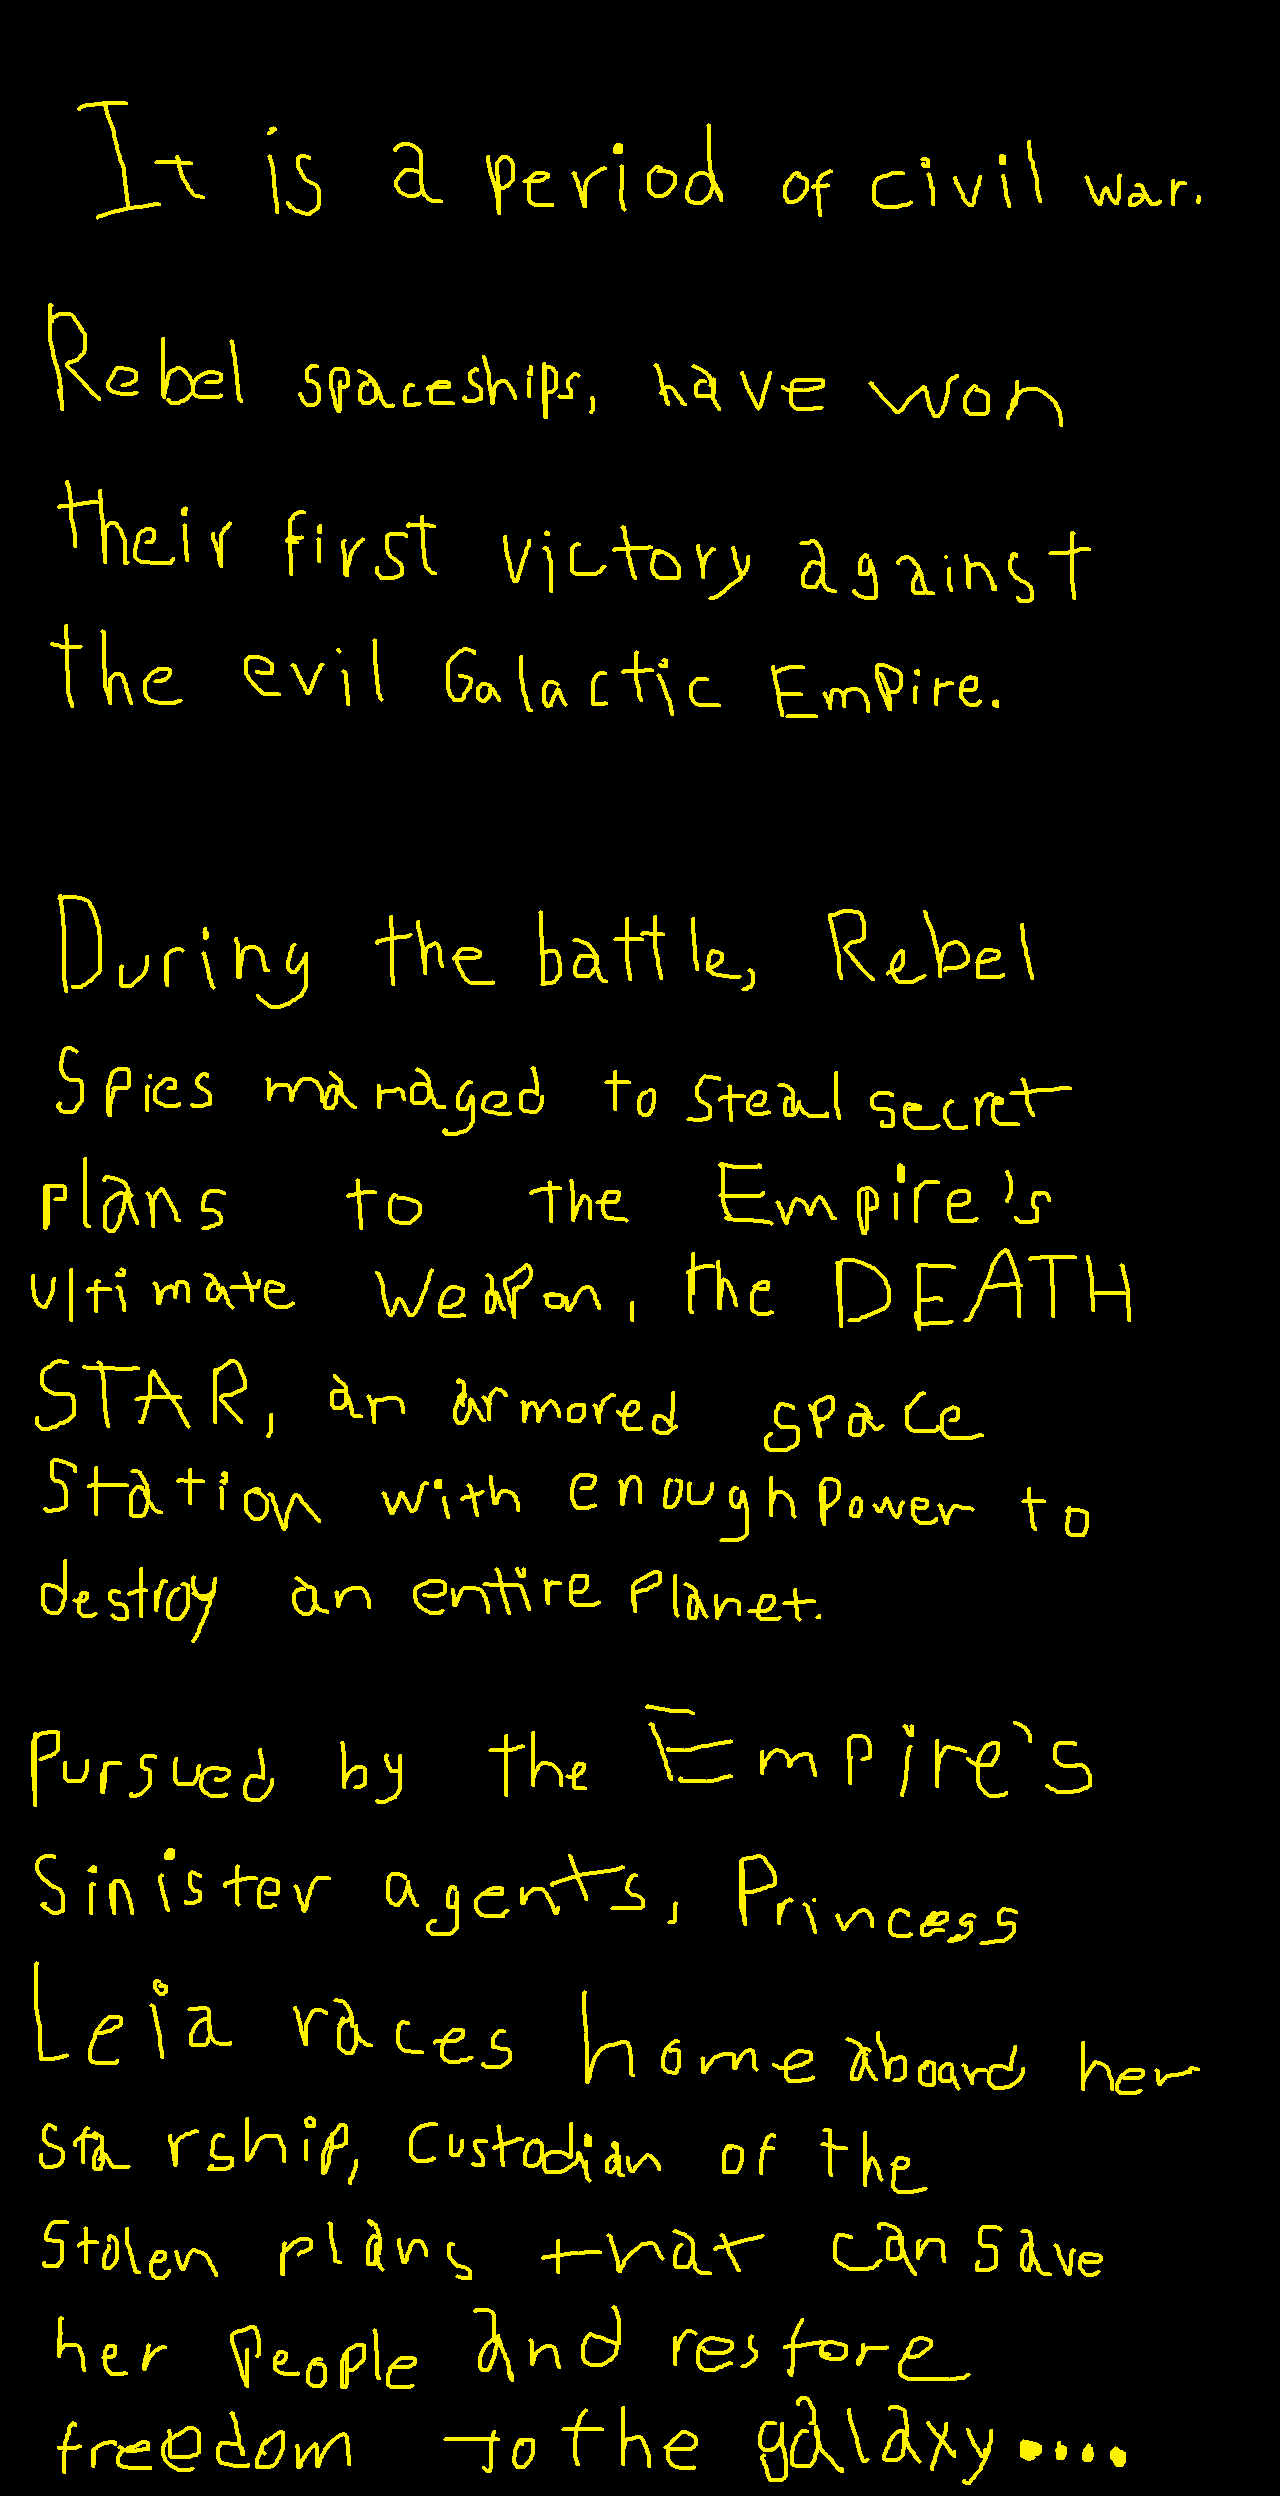 It is a period of civil war.
Rebel spaceships, have won
their first victory against
the evil Galactic Empire.
During the battle, Rebel
Spies managed to steal secret
plans to the Empire's
ultimate weapon, the DEATH
STAR, an armored space
station with enough power to
destroy an entire planet.
Pursued by the Empire's
Sinister agents, Princess
Leia races home aboard her
starship, custodian of the
stolen plans that can save
her people and restore
freedom to the galaxy....